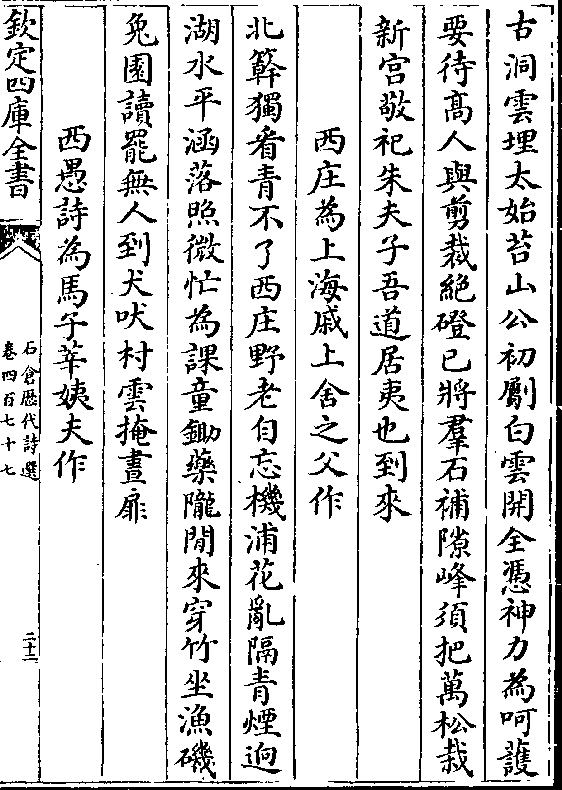 古洞雲埋太始苔山公初劚白雲開全憑神力為呵䕶
要待髙人與剪裁絶磴已將羣石補隙峰須把萬松栽
新宫敬祀朱夫子吾道居夷也到來
西庄為上海戚上舍之父作
北簳獨看青不了西庄野老自忘機浦花亂隔青煙逈
湖水平涵落照微忙為課童鋤藥隴閒來穿竹坐漁磯
兔園讀罷無人到犬吠村雲掩晝扉
西愚詩為馬子莘姨夫作
欽定四庫全書
石倉歴代詩選
卷四百七十七
二十二